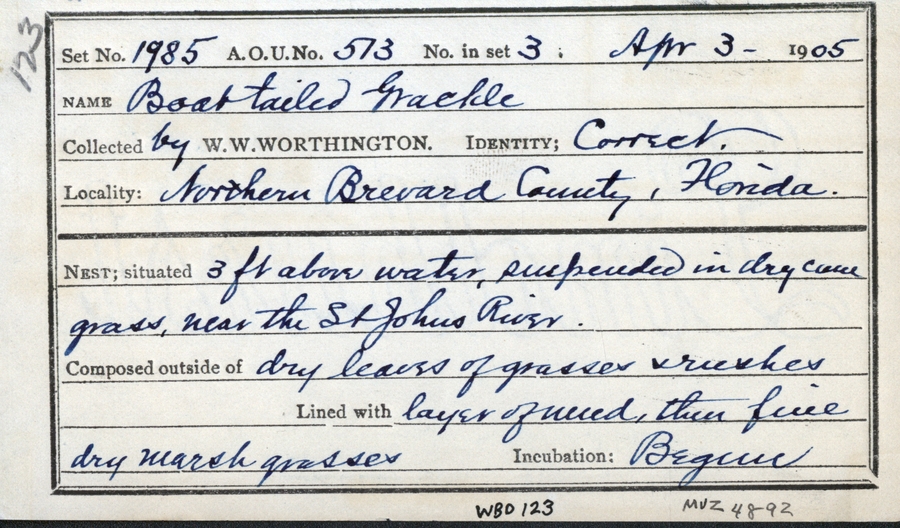 123
Set No. 1985 A.O.U.No. 513 No. in set 3 . Apr 3 - 1905
NAME Boat tailed Grackle
Collected by W.W.WORTHINGTON. IDENTITY; Correct.
Locality: Northern Brevard County, Florida.
NEST; situated 3 ft above water, suspended in dry cane
grass, near the St Johns River.
Composed outside of dry leaves of grasses & rushes
Lined with layer of mud, then fine
dry marsh grasses Incubation: Begun
WBD 123 MVZ 48-92